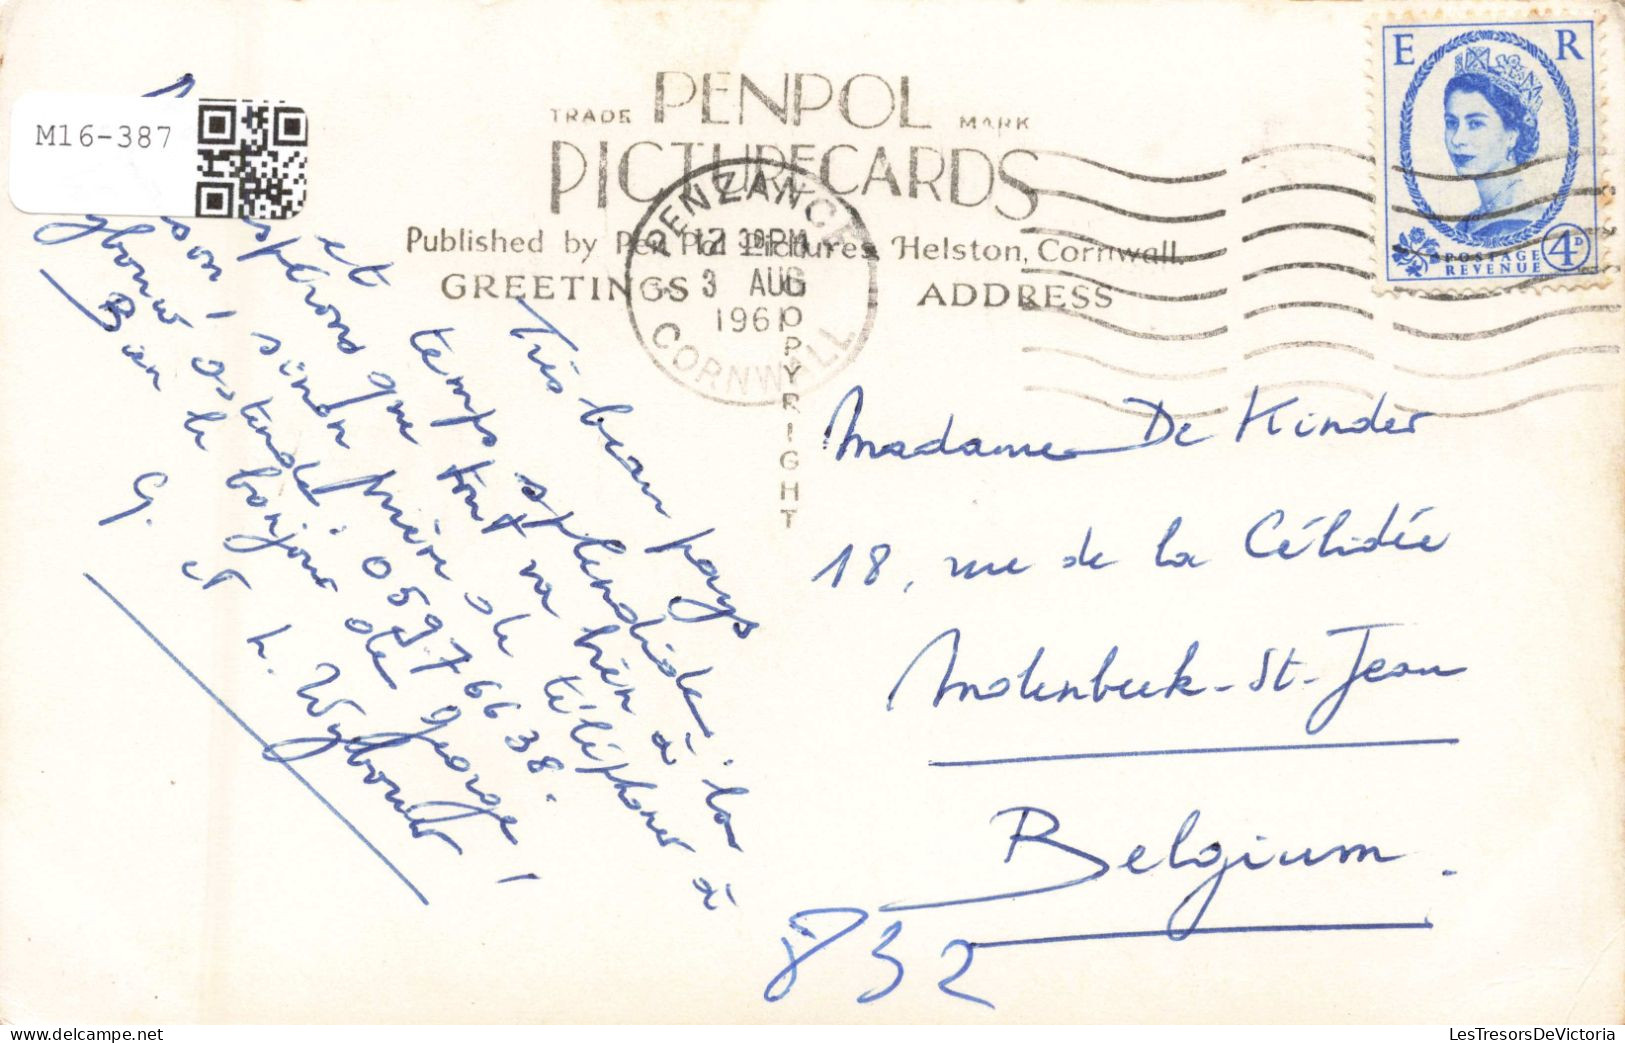 M16-387
TRADE PENPOL MARK
PICTURECARDS
Published by Pen Pol Pictures Helston, Cornwall.
GREETINGS ADDRESS
COPYRIGHT
PENZANCE
12 30 PM
3 AUG
1961
CORNWALL
E R
POSTAGE
REVENUE
4D
Très beau pays
et temps splendide
espérons que tout va bien à la
son, sinon prière de téléphoner à
ostende: 059.76638.
Bien le bonjour de George,
G. et L. Wybouw
Madame De Kinder
18, rue de la Célidée
Molenbeek-St-Jean
Belgium.
832
LesTresorsDeVictoria
LesTresorsDeVictoria.com